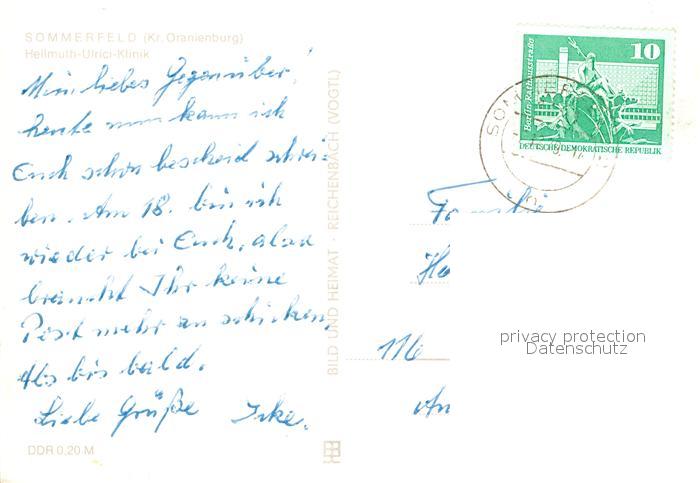 SOMMERFELD (Kr. Oranienburg)
Hellmuth-Ulrici-Klinik
Mein liebes Gegenüber!
Heute nun kann ich
Euch schon bescheid schrei-
ben. Am 18. bin ich
wieder bei Euch, also
braucht Ihr keine
Post mehr zu schicken,
Also bis bald.
Liebe Grüße
DDR 0,20 M
BILD UND HEIMAT · REICHENBACH (VOGTL)
10
Berlin, Rathausstraße
DEUTSCHE DEMOKRATISCHE REPUBLIK
Familie
Ha
116
An
privacy protection
Datenschutz